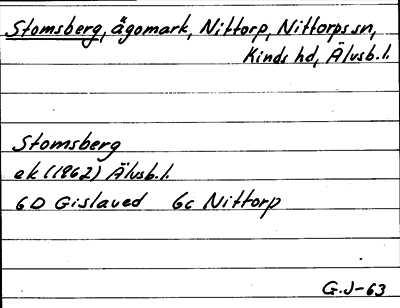 Stomsberg, ägomark, Nittorp, Nittorps sn,
Kinds hd, Älvsb.l.
Stomsberg
ek (1962) Älvsb.l.
6D Gislaved 6c Nittorp
G.J-63